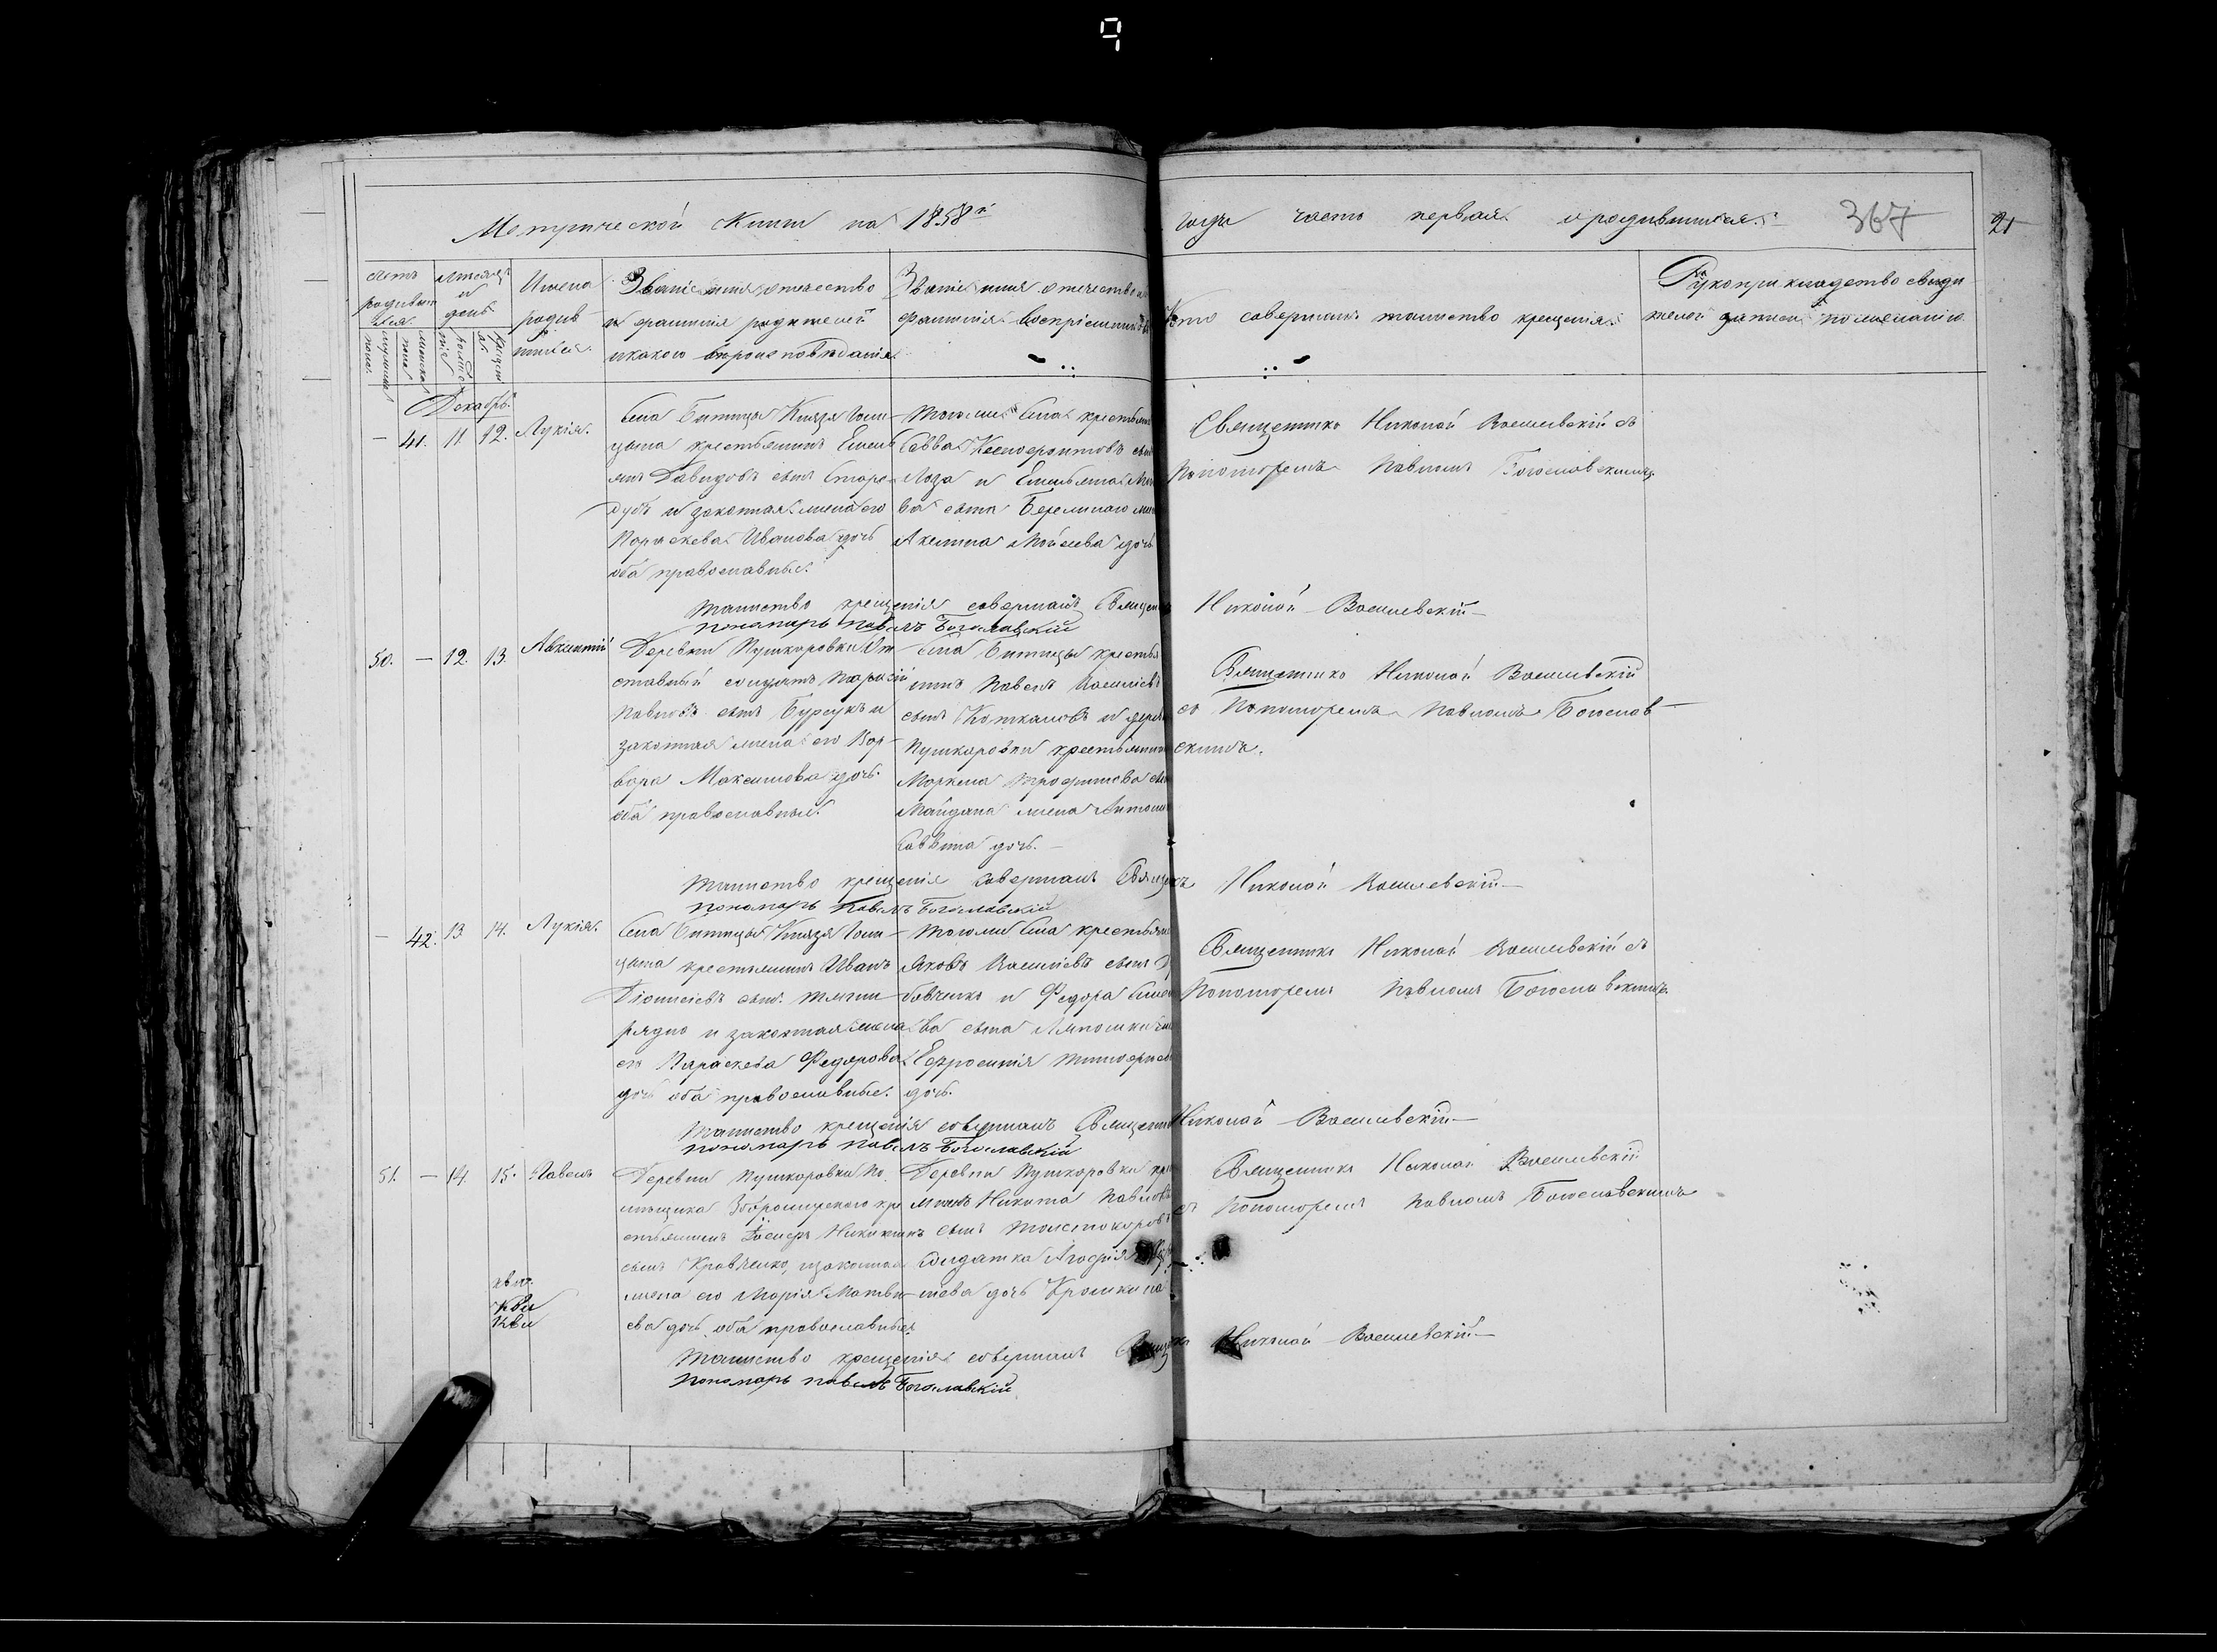 9
Метрической Книги на 1858й года часть первая о родившихся.
367
21
Счетъ родивш ихся.
Мѣсяцъ и день
Имена родив шихся.
Званіе имя отечество
и фамилія родителей
и какого вѣроисповѣданія
Званіе имя отечество и
фамилія воспріемниковъ
Кто совершалъ таинство крещенія.
Рукоприкладство свиде
телей записи по желанію
мужеска пола
женска пола
рожденіе
крещенія
Декабрь.
— 41. 11. 12. Лукія.
Села Битицы Князя Голи
цына крестьянинъ Емель
янъ Давидовъ сынъ Старо
дубъ и законная жена его
Параскева Иванова дочь
оба православные.
Того же села крестьянин
Савва Ксенофонтовъ сын
Лоза и Емельяна
ва сына Бережнаго жен
Акелина Моисеева дочь
Священникъ Николай Василевскій съ
Пономоремъ Павломъ Богословскимъ
Таинство крещенія совершалъ Священ Николай Василевскій
пономарь павелъ Богословскій
50. — 12. 13. Авксентій
Деревни Пушкаровки От
ставный солдатъ
Павловъ сынъ Бурсукъ и
законная жена его Вар
вара Максимова дочь
оба православные.
Села Битицы крестья
нинъ Павелъ Василіевъ
сынъ и дерев
Пушкаровки крестьянина
Маркела Трофимова сын
Майдана жена Антони
Саввина дочь.
Священникъ Николай Василевскій
съ Пономоремъ Павломъ Богослов
скимъ.
Таинство крещенія совершалъ Священикъ Николай Василевскій
пономарь павелъ Богословскій
— 42. 13. 14. Лукія.
Села Битицы Князя Голи
цына крестьянинъ Иванъ
Діонисіевъ сынъ Тягни
рядно и законная жена
его Параскева Федорова
дочь оба православные.
Того же Села крестьянин
Яковъ Василіевъ сынъ
бовченко и Федора Симе
ва сына Ляпошки
Ефросинія Тимофеев
дочь.
Священникъ Николай Василевскій съ
Пономоремъ Павломъ Богословскимъ
Таинство крещенія совершалъ Священ Николай Василевскій
пономарь павелъ Богословскій
51. — 14. 15. Павелъ
Деревни Пушкаровки По
мѣщика кре
стьянинъ Іосифъ Никитинъ
сынъ Кравченко, и законная
жена его Марія Матвѣ
ева дочь оба православные
Деревни Пушкаровки кре
янинъ Никита Павловъ
сынъ
Солдатка Агафія
шева дочь Крошкина
Священникъ Николай Василевскій
съ Пономоремъ Павломъ Богословскимъ
Таинство крещенія совершалъ Священикъ Николай Василевскій
пономарь павелъ Богословскій